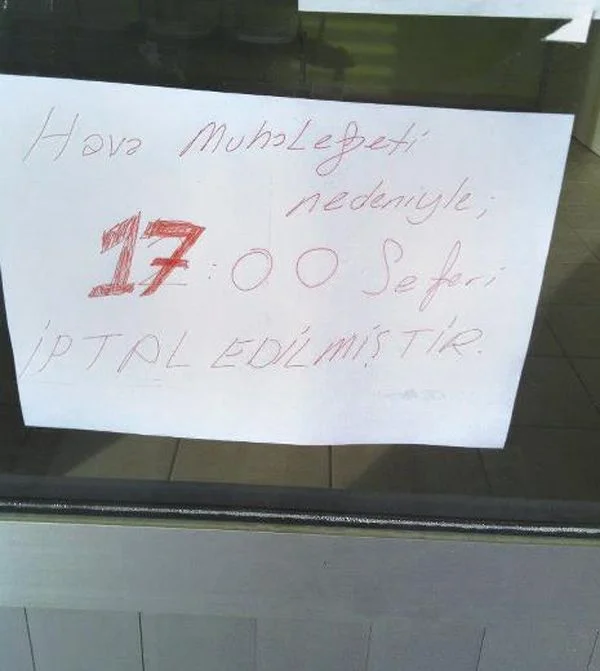 Hava Muhalefeti
nedeniyle;
17:00 Seferi
İPTAL EDİLMİŞTİR.